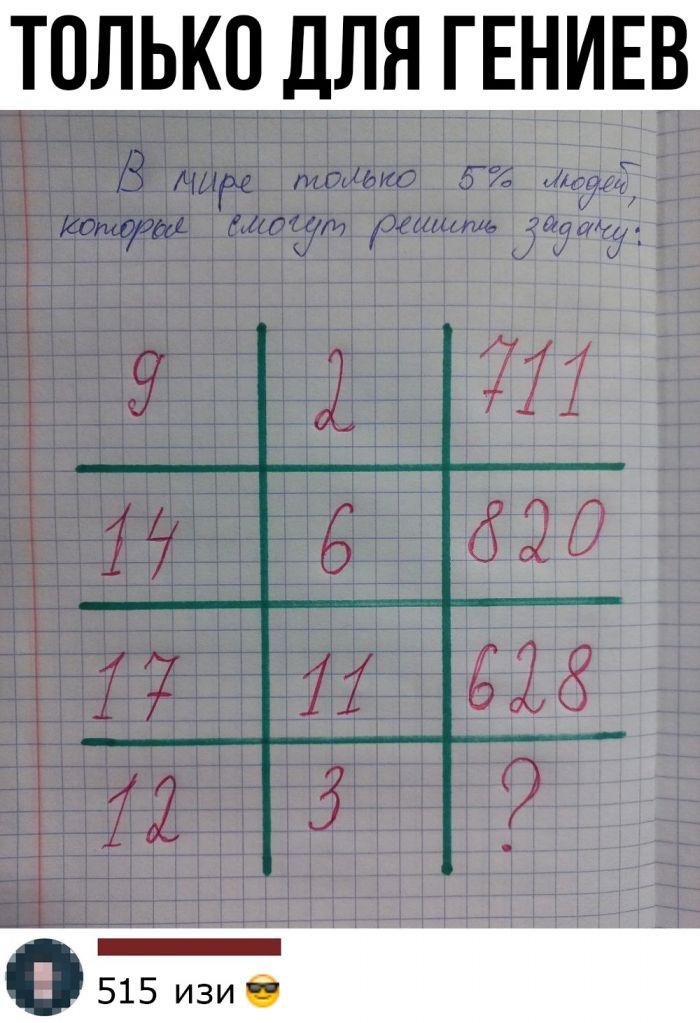 ТОЛЬКО ДЛЯ ГЕНИЕВ
В мире только 5% людей,
которые смогут решить задачу:
9 2 711
14 6 820
17 11 628
12 3 ?
515 изи 😎